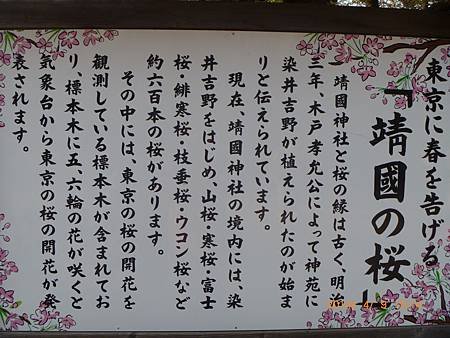 東京に春を告げる
「靖國の桜」
靖國神社と桜の縁は古く、明治
三年、木戸孝允公によって神苑に
染井吉野が植えられたのが始ま
りと伝えられています。
現在、靖國神社の境内には、染
井吉野をはじめ、山桜・寒桜・富士
桜・緋寒桜・枝垂桜・ウコン桜など
約六百本の桜があります。
その中には、東京の桜の開花を
観測している標本木が含まれてお
り、標本木に五、六輪の花が咲くと
気象台から東京の桜の開花が発
表されます。